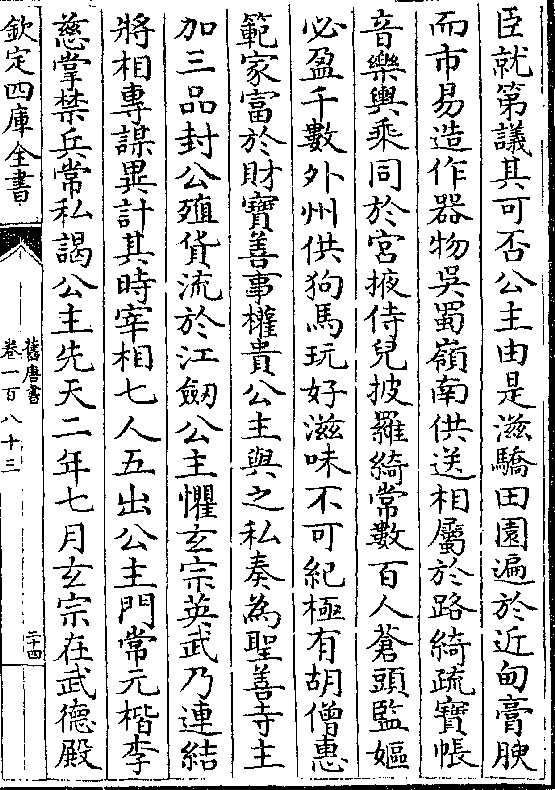 臣就第議其可否公主由是滋驕田園遍於近甸膏腴
而市易造作器物吳蜀嶺南供送相屬於路綺疏寶帳
音樂輿乘同於宮掖侍兒披羅綺常數百人蒼頭監嫗
必盈千數外州供狗馬玩好滋味不可紀極有胡僧惠
範家富於財寶善事權貴公主與之私奏為聖善寺主
加三品封公殖貨流於江劒公主懼玄宗英武乃連結
將相專謀異計其時宰相七人五出公主門常元楷李
慈掌禁兵常私謁公主先天二年七月玄宗在武德殿
欽定四庫全書
舊唐書
卷一百八十三
二十四